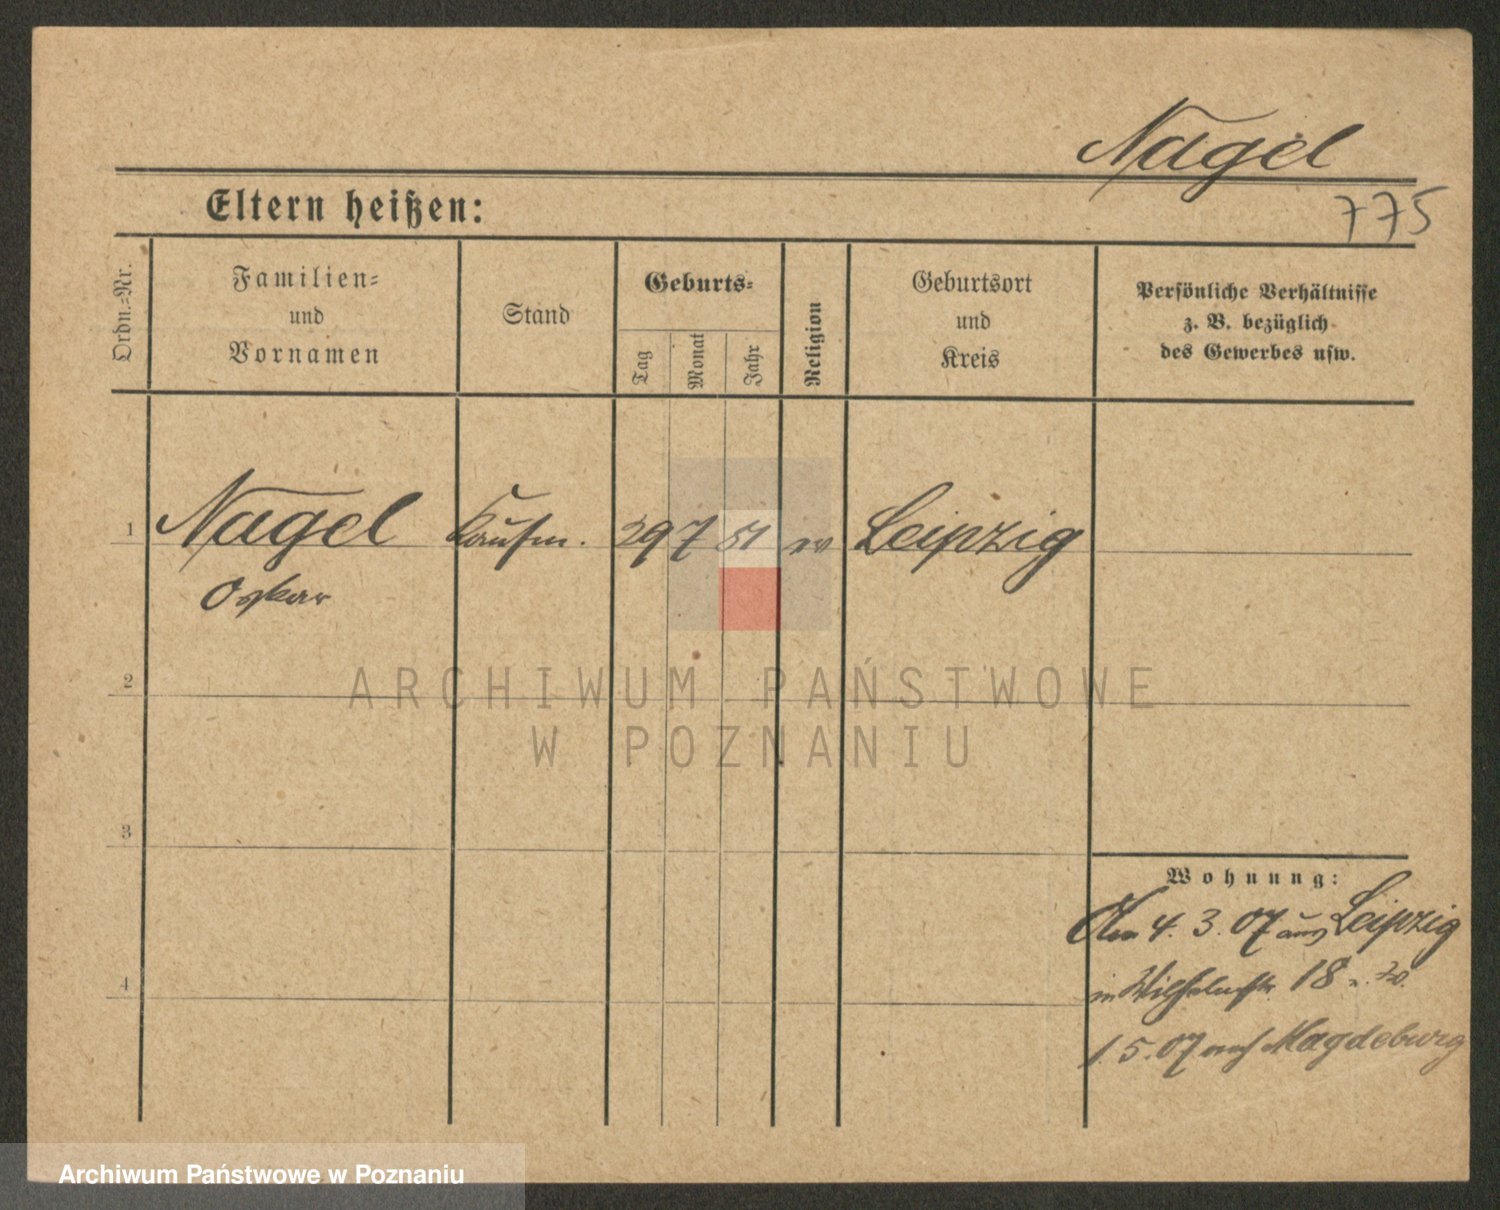 Nagel
775
Eltern heißen:
Ordn.-Nr.
Familien-
und
Vornamen
Stand
Geburts-
Tag
Monat
Jahr
Religion
Geburtsort
und
Kreis
Persönliche Verhältnisse
z. B. bezüglich
des Gewerbes usw.
1 Nagel Kaufm. 29 7 51 ev Leipzig
Oskar
2
ARCHIWUM PAŃSTWOWE
W POZNANIU
3
4
Wohnung:
Am 4. 3. 07 aus Leipzig
in Wilhelmstr. 18
1. 5. 07 nach Magdeburg
Archiwum Państwowe w Poznaniu